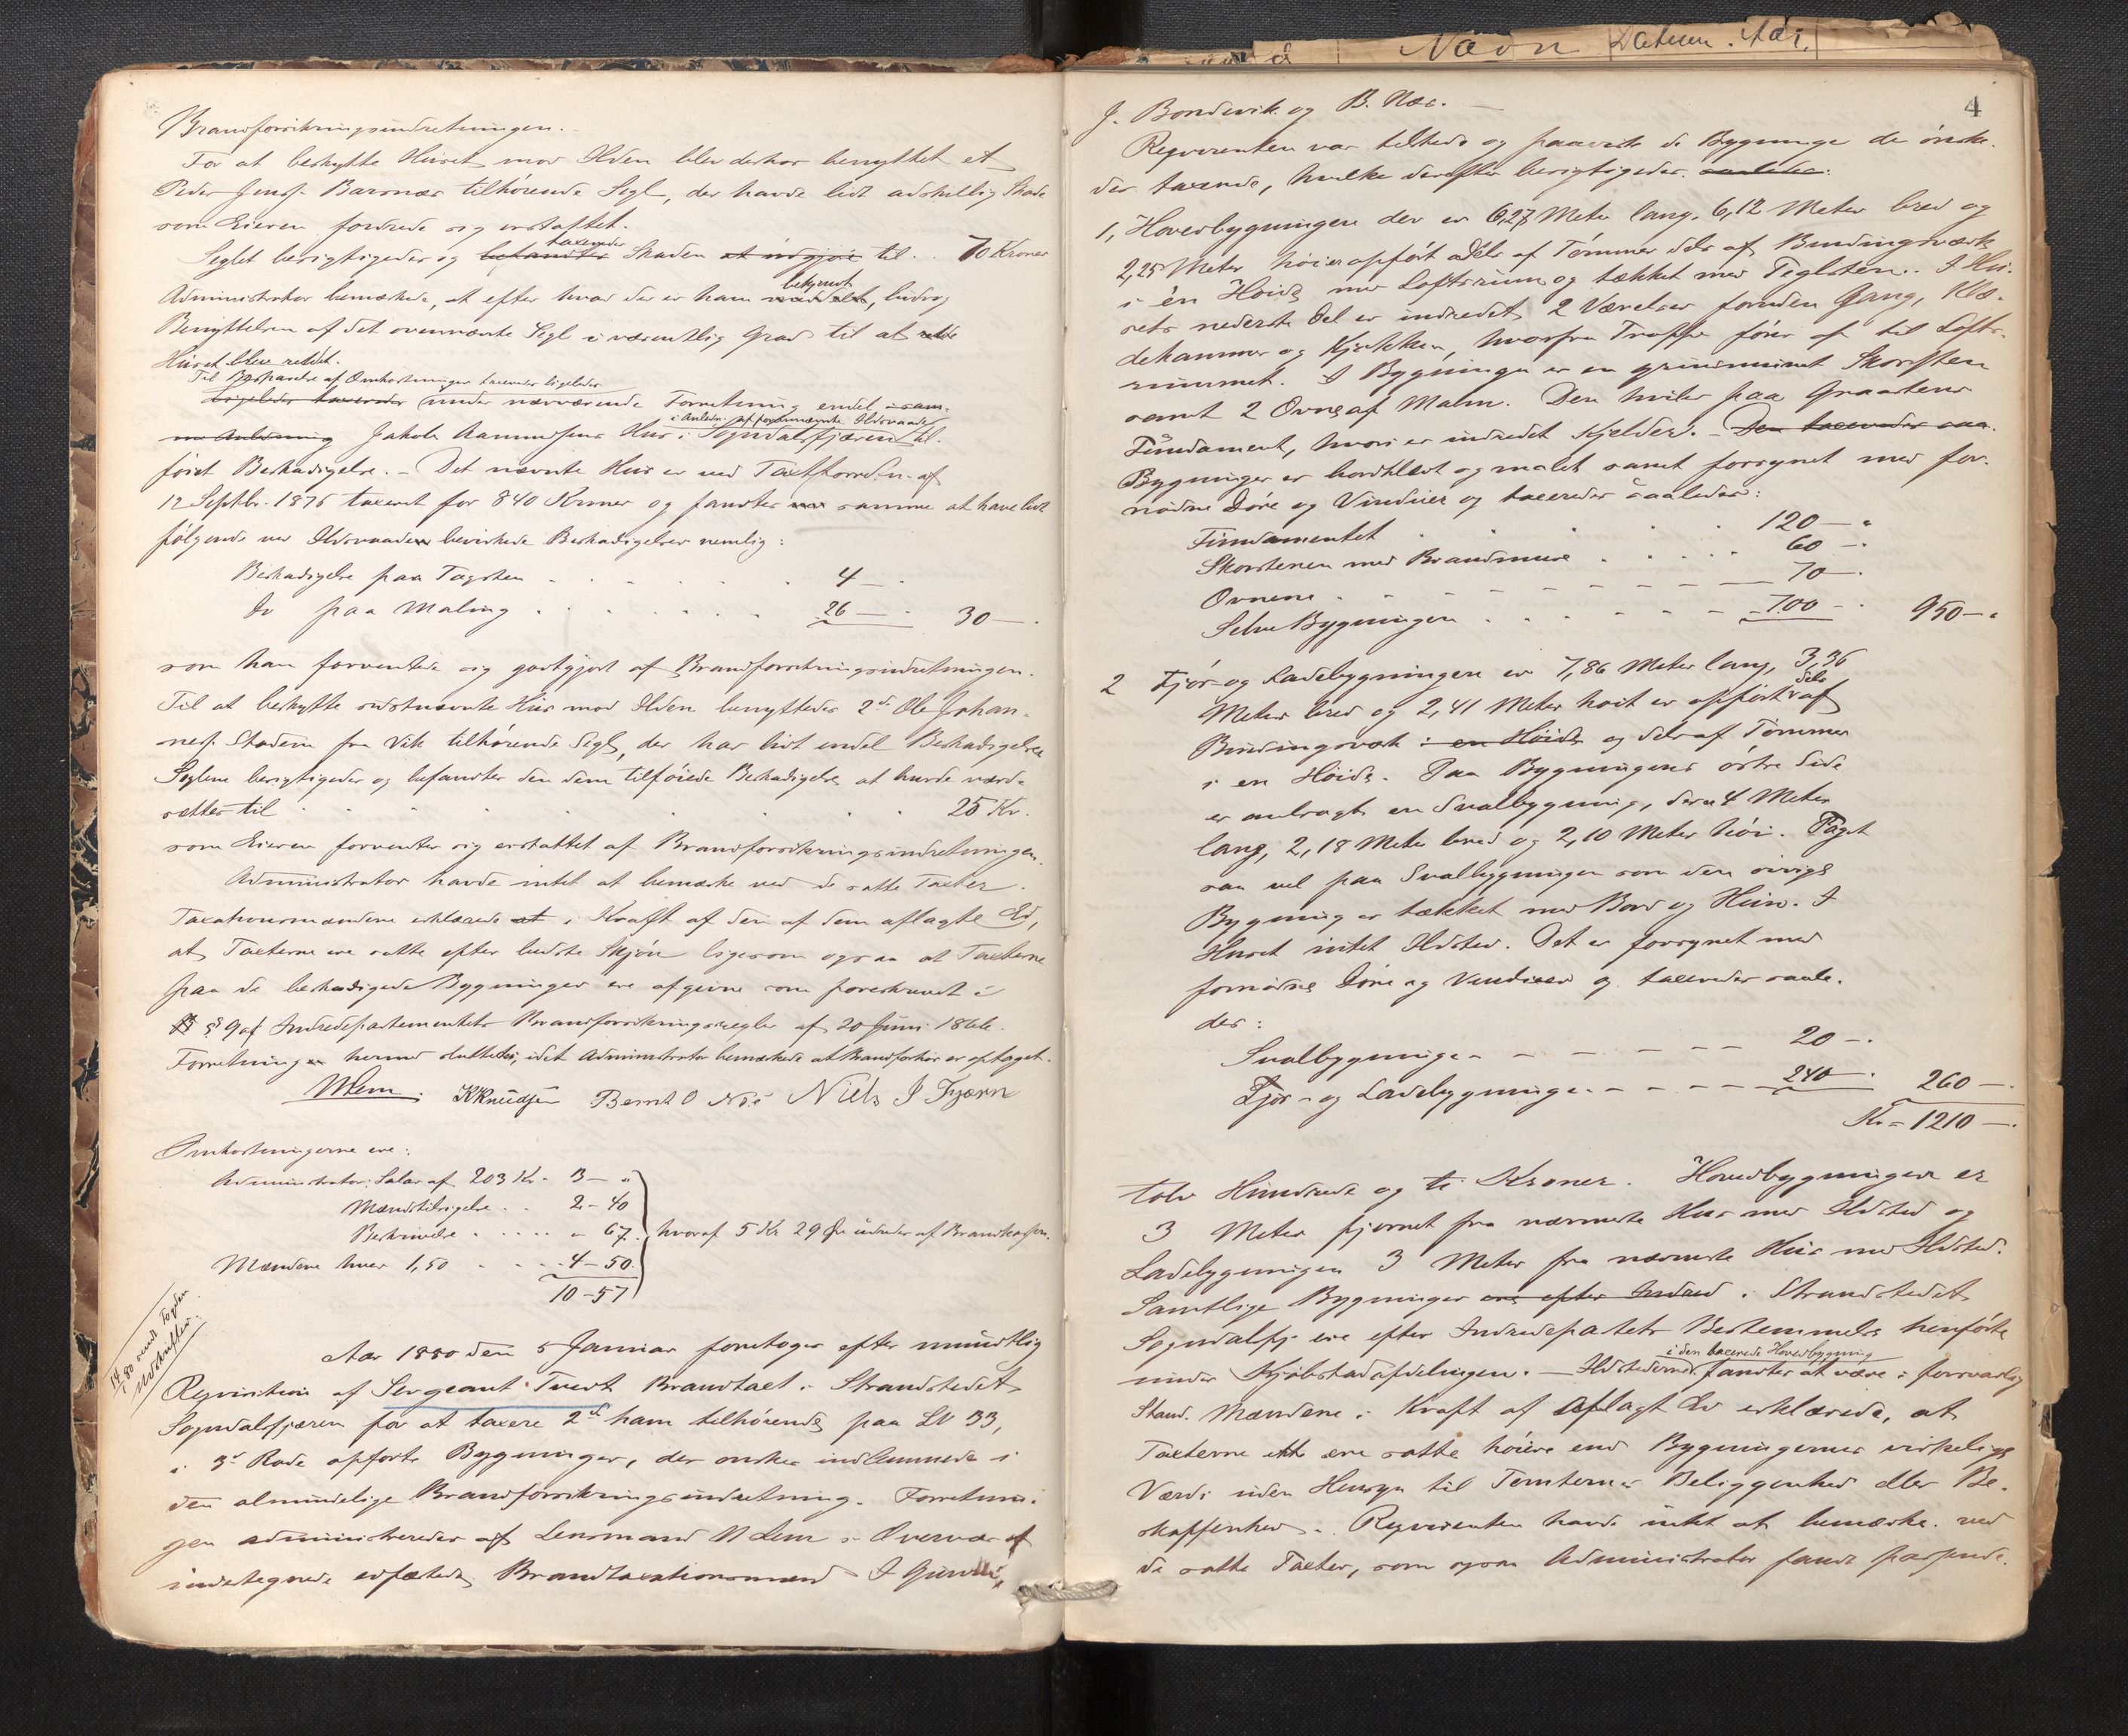 Brandforsikringsindretningen.
For at beskytte Huset mod Ilden blev derhos benyttet et
Peder Jens. Barsnæs tilhørende Segl, der havde lidt adskillig Skade
som Eieren fordrede sig erstattet.
Seglet besigtigedes og befandtes taxeredes Skaden at udgjøre til . . 70 Kroner
Administrator bemærkede, at efter hvad der er ham meddelt bekjendt, bidrog
Benyttelsen af det ovennævnte Segl i væsentlig Grad til at redde
Huset blev reddet.
Til Besparelse af Omkostninger taxeredes ligeledes
Ligeledes taxeredes under nærværende Forretning endel i sam-
me Anledning Jakob Aamundsens Hus i Sogndalsfjæren i Anledn. af forannævnte Ildsvaade til-
føiet Beskadigelse. – Det nævnte Hus er ved Taxtforretn. af
12 Septbr. 1876 taxeret for 840 Kroner og fandtes samme at have lidt
følgende ved Ildsvaaden bevirkede Beskadigelser nemlig:
Beskadigelse paa Tagsten . . . . . 4 – .
Do paa Maling . . . . . . 26 – . 30 – .
som han forventede sig godtgjort af Brandforsikringsindretningen.
Til at beskytte sidstnævnte Hus mod Ilden benyttedes 2de Ole Johan-
nes. Stadem fra Vik tilhørende Segl, der har lidt endel Beskadigelse
Seglene besigtigedes og befandtes den dem tilføiede Beskadigelse at burde værd-
sættes til . . . . . . 25 Kr.
som Eieren forventer sig erstattet af Brandforsikringsindretningen.
Administrator havde intet at bemærke ved de satte Taxter.
Taxationsmændene erklærede at i Kraft af den af dem aflagte Ed,
at Taxterne ere satte efter bedste Skjøn ligesom ogsaa at Taxterne
paa de beskadigede Bygninger ere afgivne som foreskrevet i
§ 9 af Indredepartementets Brandforsikringsregler af 20 Juni 1866.
Forretningen hermed sluttedes, idet Administrator bemærkede at Brandforhør er optaget.
MLem. KKnudsen Bernt O Næs Niels J Fjærn
Omkostningerne ere:
Administrator: Salær af 203 Kr. 3 – "
Mændstilsigelse . . 2 – 40
Beskrivelse . . . . . – 67
Mændene hver 1,50 . . . . 4 – 50
10 – 57
hvoraf 5 Kr 29 Øre udredes af Brandkassen.
14/1 80 sendt Fogden
Udskrifter.
Aar 1880 den 5 Januar foretoges efter mundtlig
Reqvisition af Sergeant Tvedt Brandtaxt i Strandstedet
Sogndalsfjæren for at taxere 2de ham tilhørende paa LN 33,
i 3die Rode opførte Bygninger, der ønskes indlemmede i
den almindelige Brandforsikringsindretning. Forretnin-
gen administreredes af Lensmand M Lem i Overvær af
undertegnede edfæstede Brandtaxationsmænd
4
J. Bondevik og B. Næs. –
Reqvirenten var tilstede og paaviste de Bygninger de ønske-
des taxerede, hvilke derefter besigtigedes saaledes:
1, Hovedbygningen der er 6,27 Meter lang, 6,12 Meter bred og
2,25 Meter høi er opført dels af Tømmer dels af Bindingsværk
i én Høide med Loftsrum og tækket med Teglsten. I Hu-
sets nederste Del er indredet 2 Værelser foruden Gang, Klæ-
dekammer og Kjøkken, hvorfra Trappe fører op til Lofts-
rummet. I Bygningen er en grundmuret Skorsten
samt 2 Ovne af Malm. Den hviler paa Graastens
Fundament, hvori er indredet Kjelder. – Den taxeredes saa-
Bygningen er bordklædt og malet samt forsynet med for-
nødne Døre og Vinduer og taxeredes saaledes:
Fundamentet . . . . 120 – "
Skorstenen med Brandmure . . . . 60 – .
Ovnene . . – – – – – 70 – .
Selve Bygningen . . . . – – 700 – . 950 – "
2 Fjøs- og Ladebygningen er 7,86 Meter lang, 3,36
Meter bred og 2,41 Meter høit er opført dels af
Bindingsværk i en Høide og dels af Tømmer
i en Høide. Paa Bygningens østre Side
er anbragt en Svalbygning, der er 4 Meter
lang, 2,18 Meter bred og 2,10 Meter høi. Taget
saa vel paa Svalbygningen som den øvrige
Bygning er tækket med Bord og Heim. I
Huset intet Ildsted. Det er forsynet med
fornødne Døre og Vinduer og taxeredes saale-
des:
Svalbygningen – – – – – – 20 – .
Fjøs- og Ladebygningen – – – – 240 – . 260 – .
Kr = 1210 – .
tolv Hundrede og ti Kroner. Hovedbygningen er
3 Meter fjernet fra nærmeste Hus med Ildsted og
Ladebygningen 3 Meter fra nærmeste Hus med Ildsted.
Samtlige Bygninger ere efter Indred i Strandstedet
Sogndalsfj ere efter Indredepartets Bestemmelse henførte
under Kjøbstadafdelingen. – Ildstederne i den taxerede Hovedbygning fandtes at være i forsvarlig
Stand. Mændene i Kraft af aflagt Ed erklærede, at
Taxterne ikke ere satte høiere end Bygningernes virkelige
Værdi uden Hensyn til Tomternes Beliggenhed eller Be-
skaffenhed. Reqvirenten havde intet at bemærke ved
de satte Taxter, som ogsaa Administrator fandt passende.
Navn Datum. Aar.